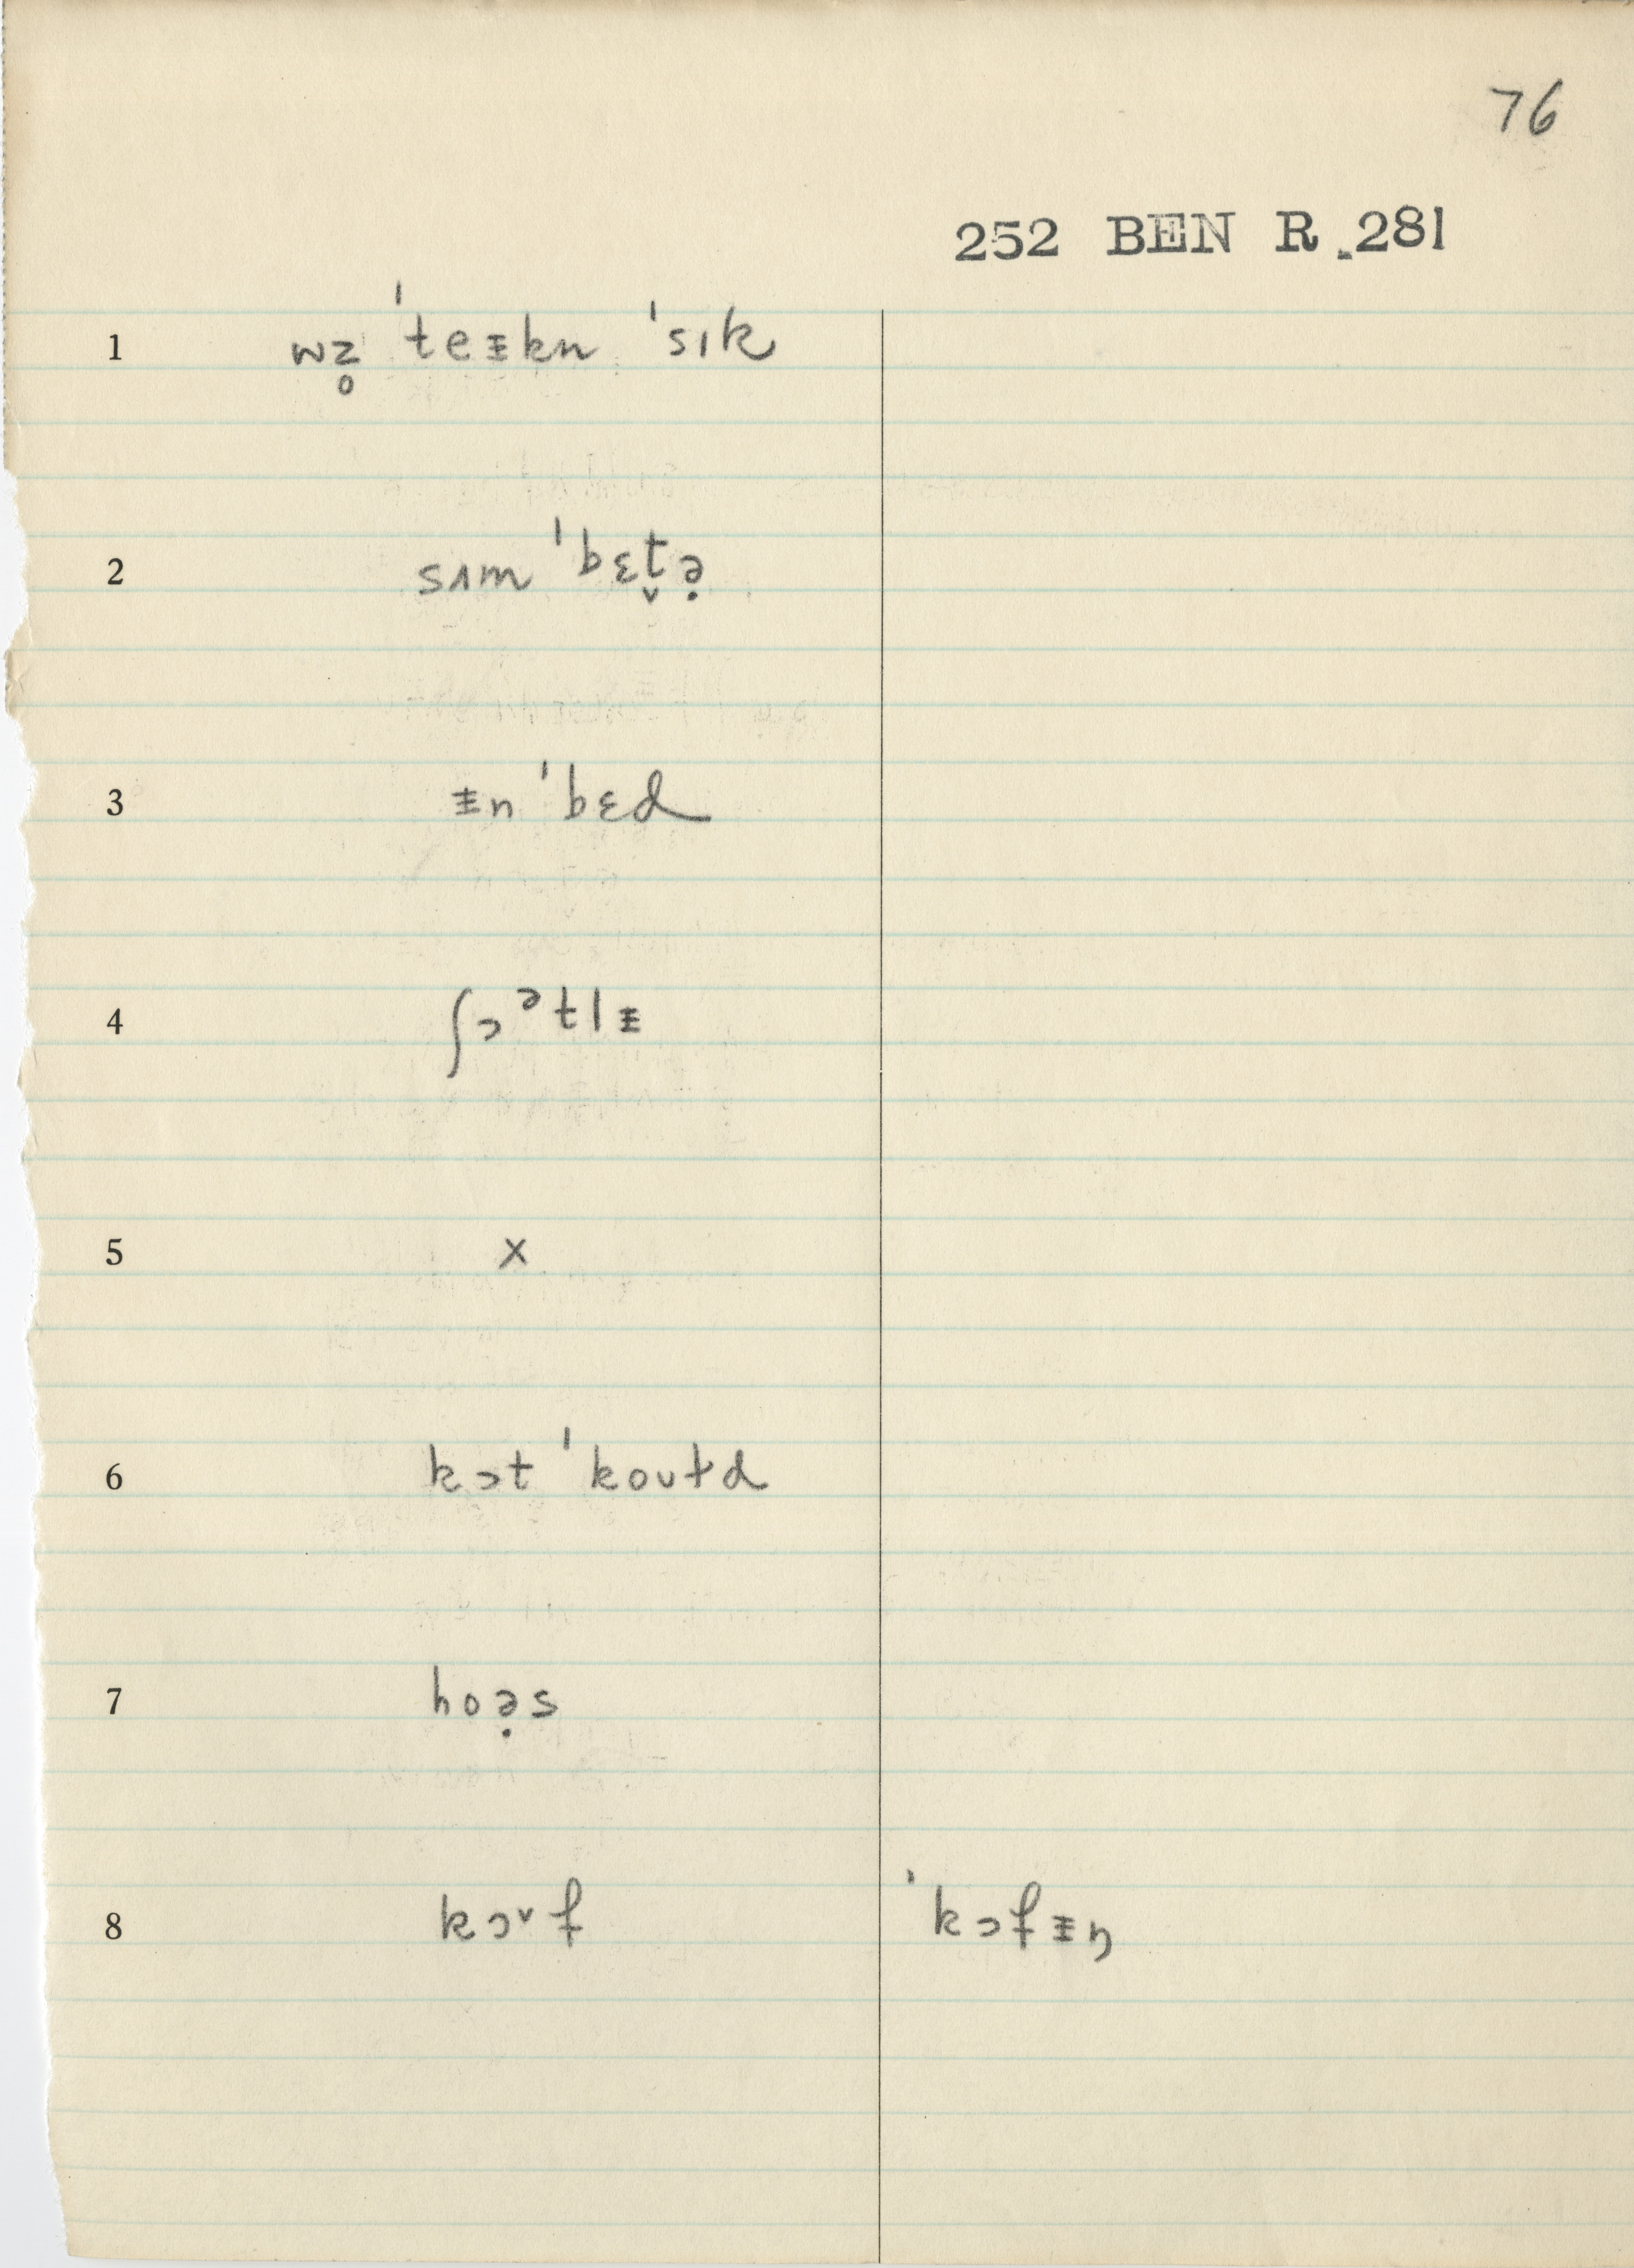 76
252 BEN R. 281
1 wz̥ ˈteᵻkn ˈsɪk
2 sʌm ˈbɛt̬ə̣
3 ᵻn ˈbɛd
4 ʃɔᵊtlᵻ
5 x
6 kɔt ˈkoʊɫd
7 hoə̣s
8 kɔˇf ˈkɔfᵻŋ